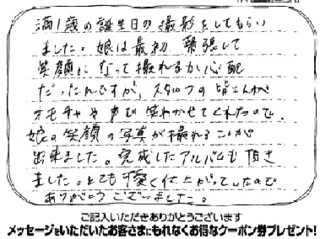 満1歳の誕生日の撮影をしてもらい
ました。娘は最初 緊張して
笑顔になって撮れるか心配
だったんですが、スタッフの皆さんが
オモチャや声で笑わせてくれたので、
娘の笑顔の写真が撮れることが
出来ました。完成したアルバムも頂き
ました。とても 仕上がっていたので
ありがとうございました。
ご記入いただきありがとうございます
メッセージをいただいたお客さまにもれなくお得なクーポン券プレゼント!